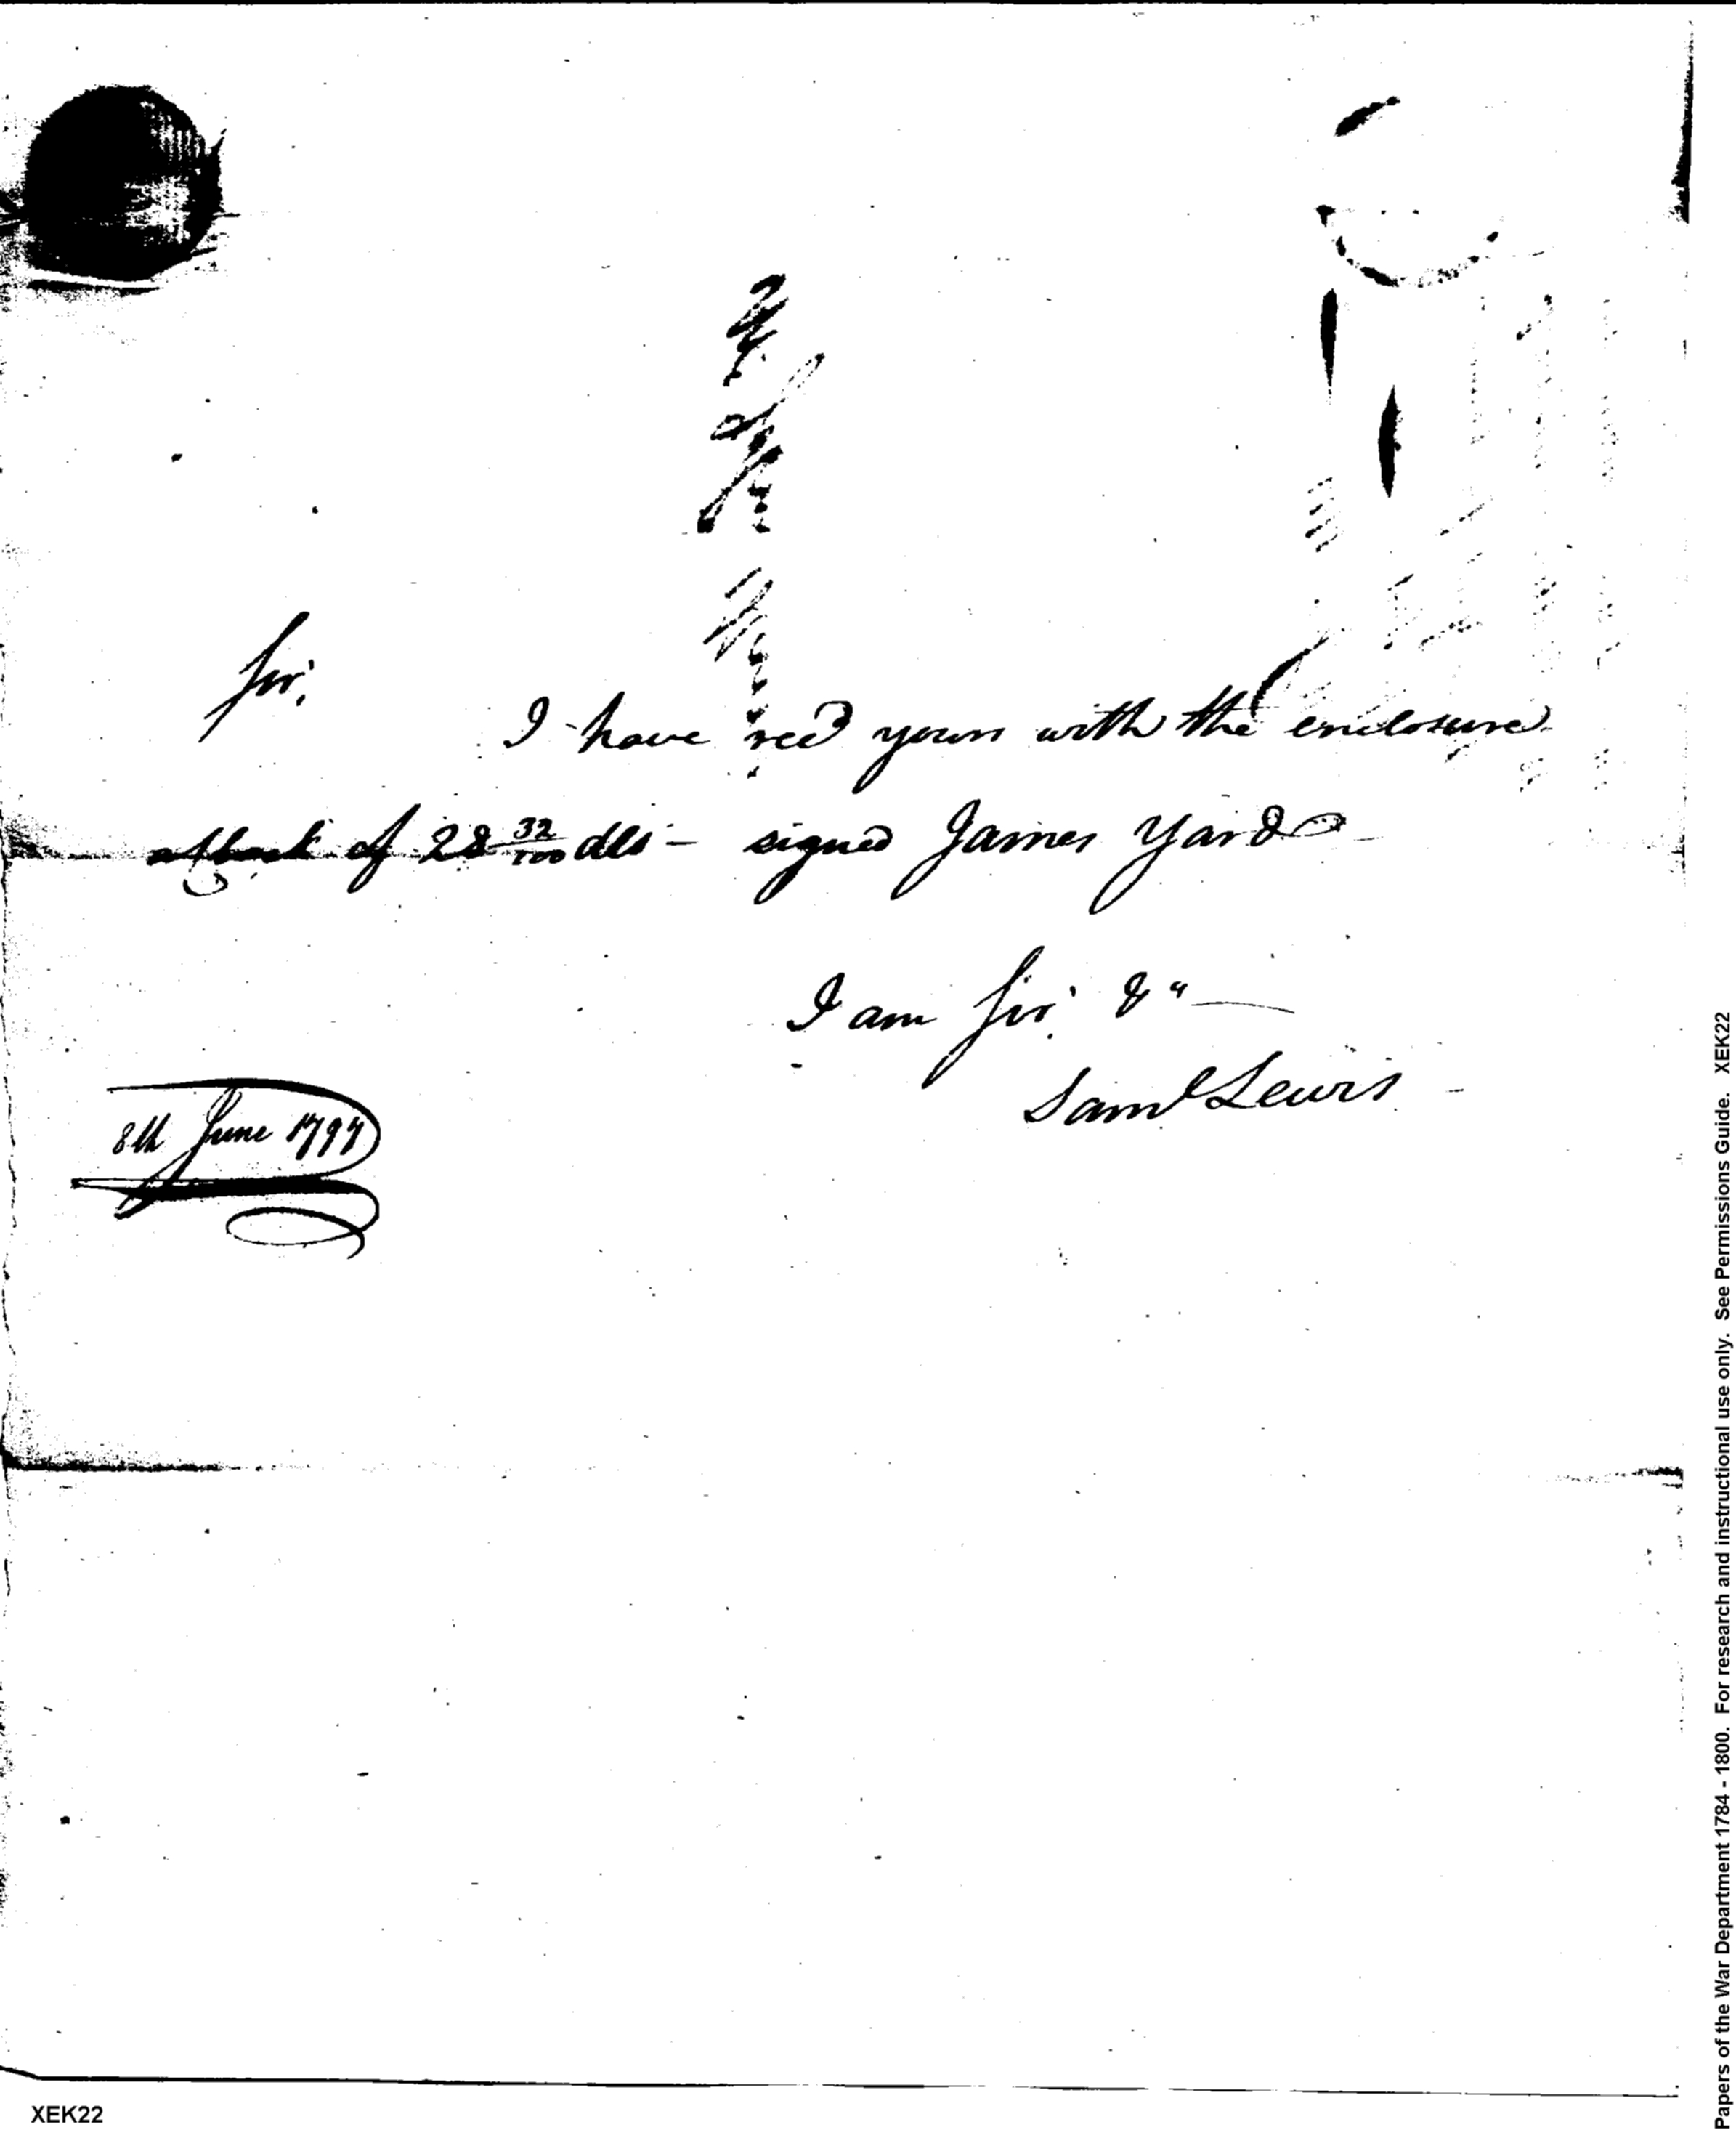 Sir,
I have recd yours with the enclosure
of 28 32/100 dls - signed James Yard
I am Sir, &"
Saml Lewis
8th June 1797
XEK22
Papers of the War Department 1784 - 1800. For research and instructional use only. See Permissions Guide. XEK22